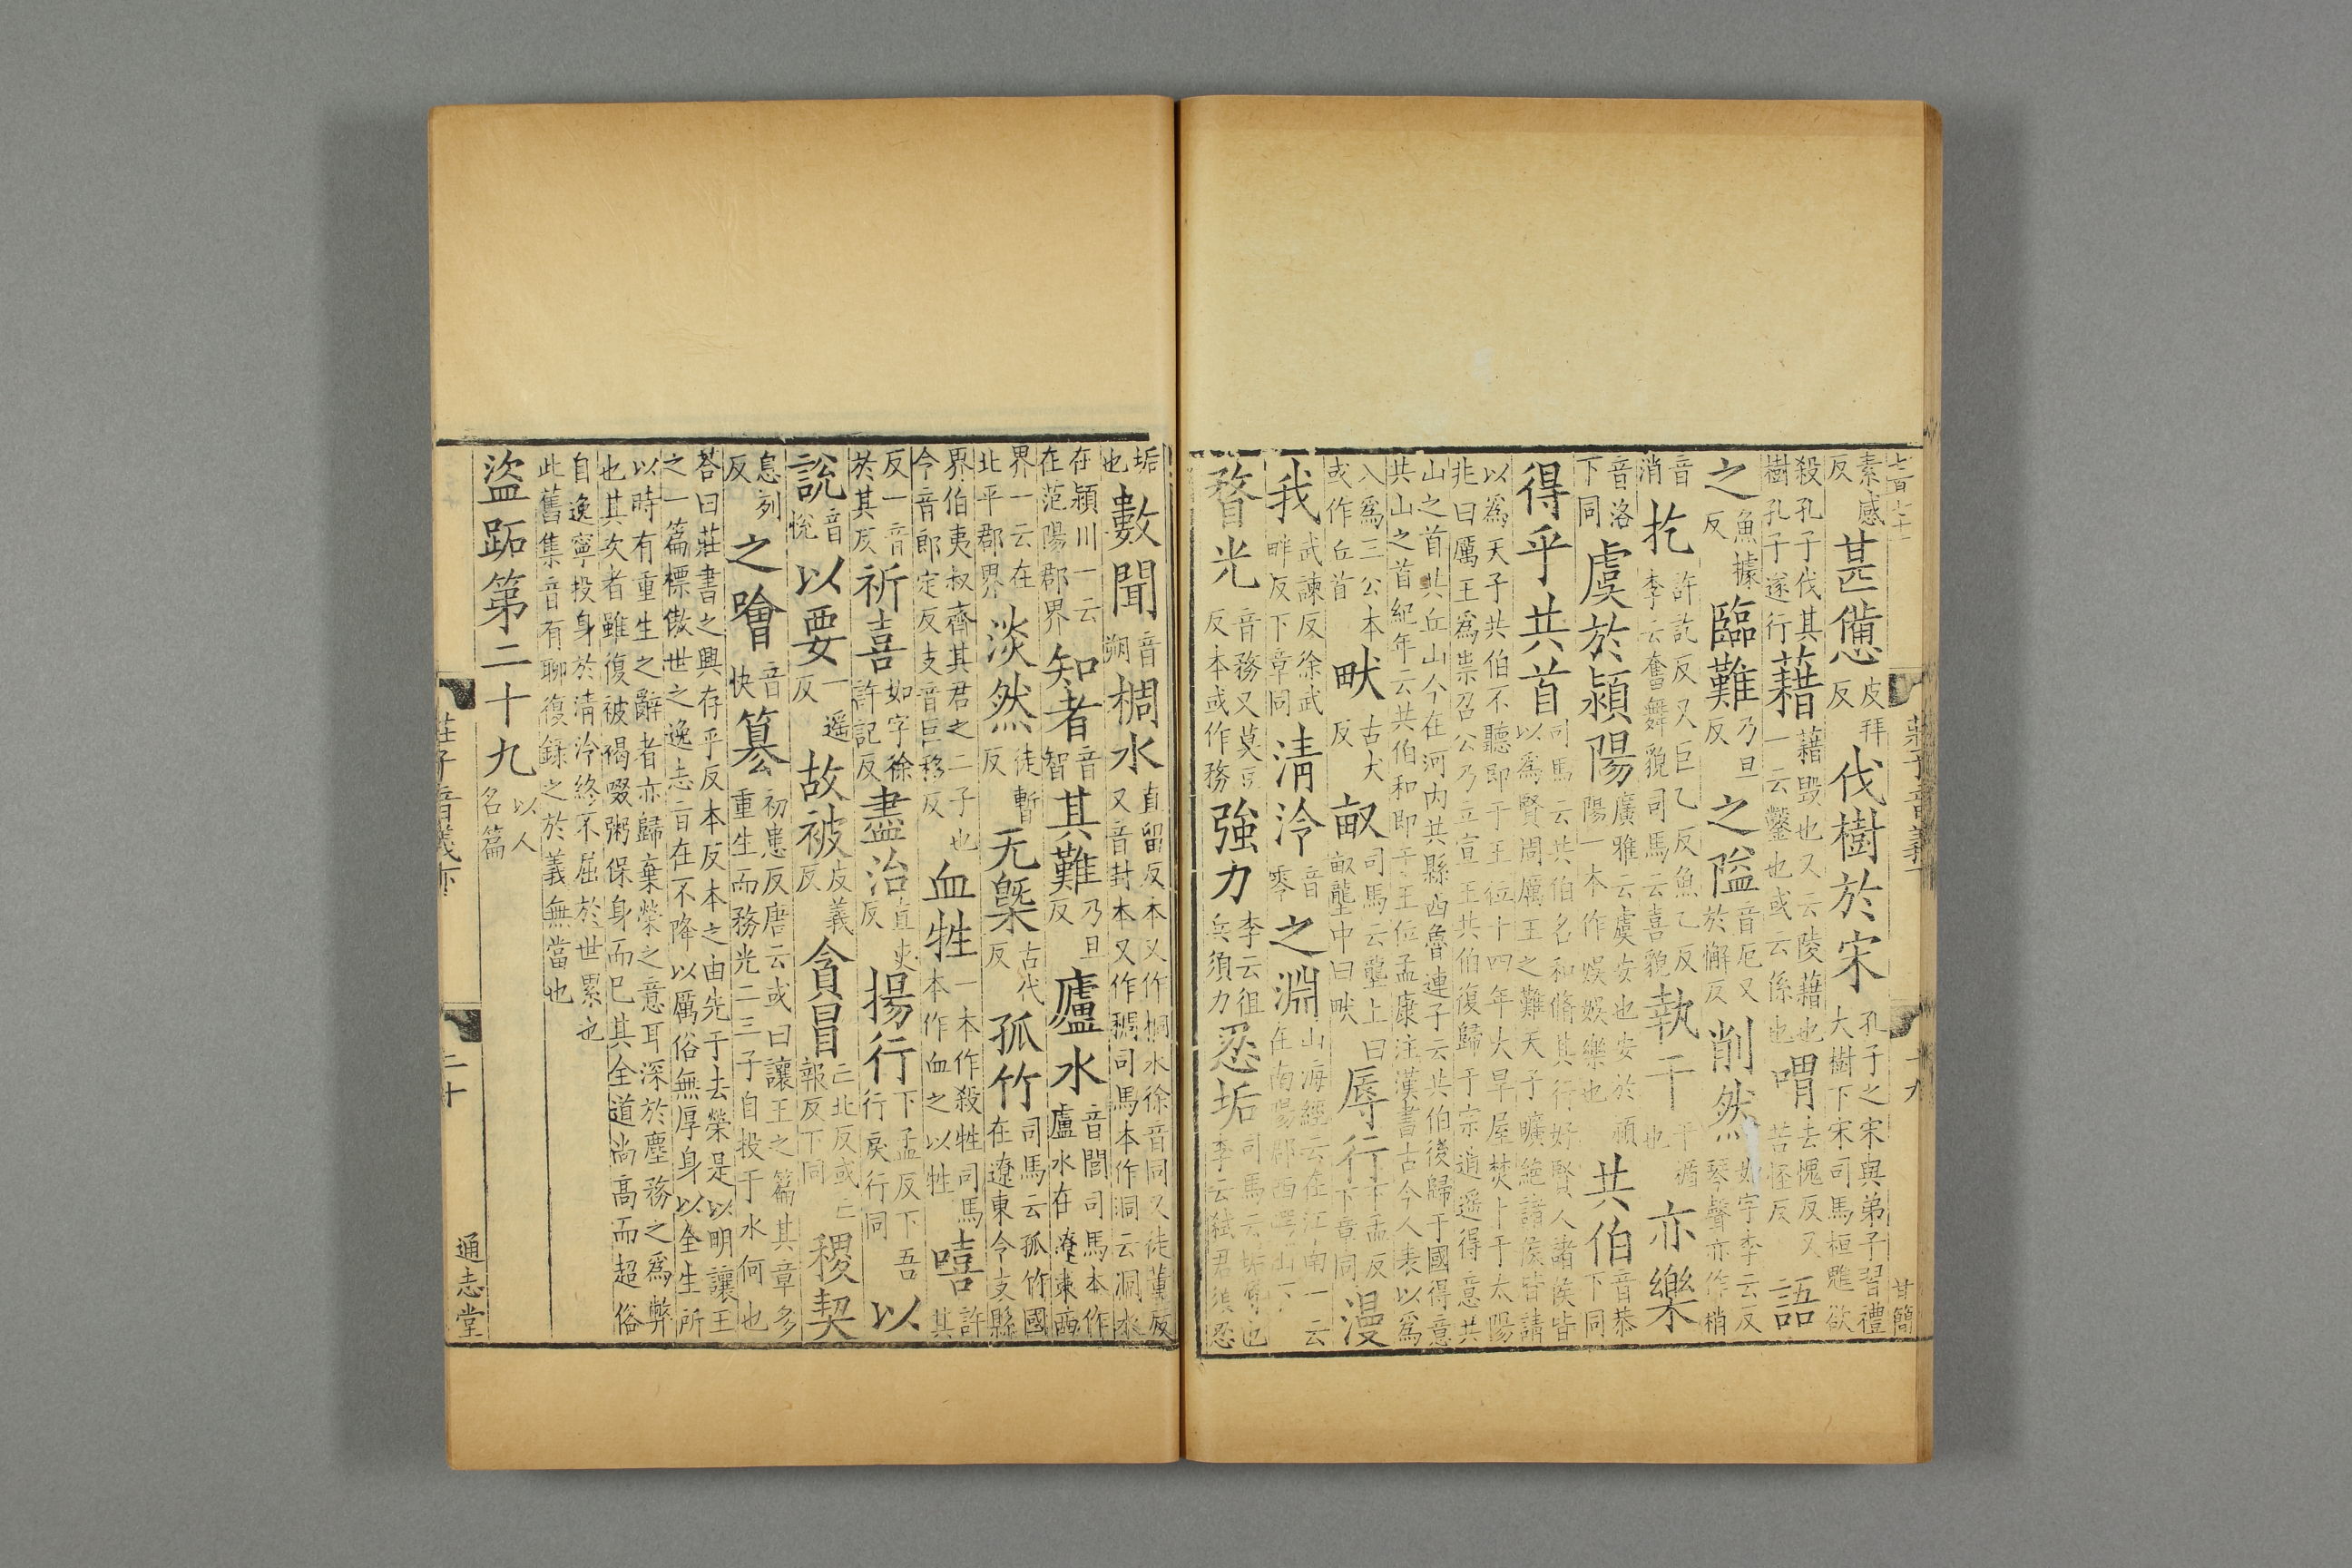 素感反甚憊皮拜反伐樹於宋孔子之宋與弟子習禮大樹下宋司馬桓魋欲
殺孔子伐其樹孔子遂行藉藉毀也又云陵藉也一云鑿也或云係也喟去愧反又苦怪反語
之魚據反臨難乃旦反之隘音厄又於懈反削然如字李云反琴聲亦作梢
音消扢許訖反又巨乙反魚乙反李云奮舞貌司馬云喜貌執干干楯也亦樂
音洛下同虞於潁陽廣雅云虞安也安於潁陽一本作娛娛樂也共伯音恭下同
得乎共首司馬云共伯名和脩其行好賢人諸侯皆以爲賢周厲王之難天子曠絕諸侯皆請
以爲天子共伯不聽即于王位十四年大旱屋焚卜于太陽兆曰厲王爲祟召公乃立宣王共伯復歸于宗逍遥得意共
山之首共丘山今在河內共縣西魯連子云共伯後歸于國得意共山之首紀年云共伯和即于王位孟康注漢書古今人表以爲
入爲三公本或作丘首畎古犬反畝司馬云壟上曰畝壟中曰畎辱行下孟反下章同漫
我武諫反徐武畔反下章同淸泠音零之淵山海經云在江南一云在南陽郡西崿山下
瞀光音務又莫豆反本或作務強力李云阻兵須力忍垢司馬云垢辱也李云弒君須忍
莊子音義下 十九 甘簡
垢也數聞音朔椆水直留反本又作桐水徐音同又徒董反又音封本又作稠司馬本作洞云洞水
在潁川一云在范陽郡界知者音智其難乃旦反廬水音閭司馬本作盧水在遼東西
界一云在北平郡界淡然徒暫反无槩古代反孤竹司馬云孤竹國在遼東令支縣
界伯夷叔齊其君之二子也令音郎定反支音巨移反血牲一本作殺牲司馬本作血之以牲嘻許其
反一音於其反祈喜如字徐許記反盡治直吏反揚行下孟反下吾行戾行同以
說音悅以要一遥反故被皮義反貪冒亡北反或亡報反下同稷契
息列反之噲音快篡初患反唐云或曰讓王之篇其章多重生而務光二三子自投于水何也
荅曰莊書之興存乎反本反本之由先于去榮是以明讓王之一篇標傲世之逸志旨在不降以厲俗無厚身以全生所
以時有重生之辭者亦歸棄榮之意耳深於塵務之爲弊也其次者雖復被褐啜粥保身而已其全道尚高而超俗
自逸寧投身於清泠終不屈於世累也此舊集音有聊復錄之於義無當也
盜跖第二十九以人名篇
莊子音義下 二十 通志堂